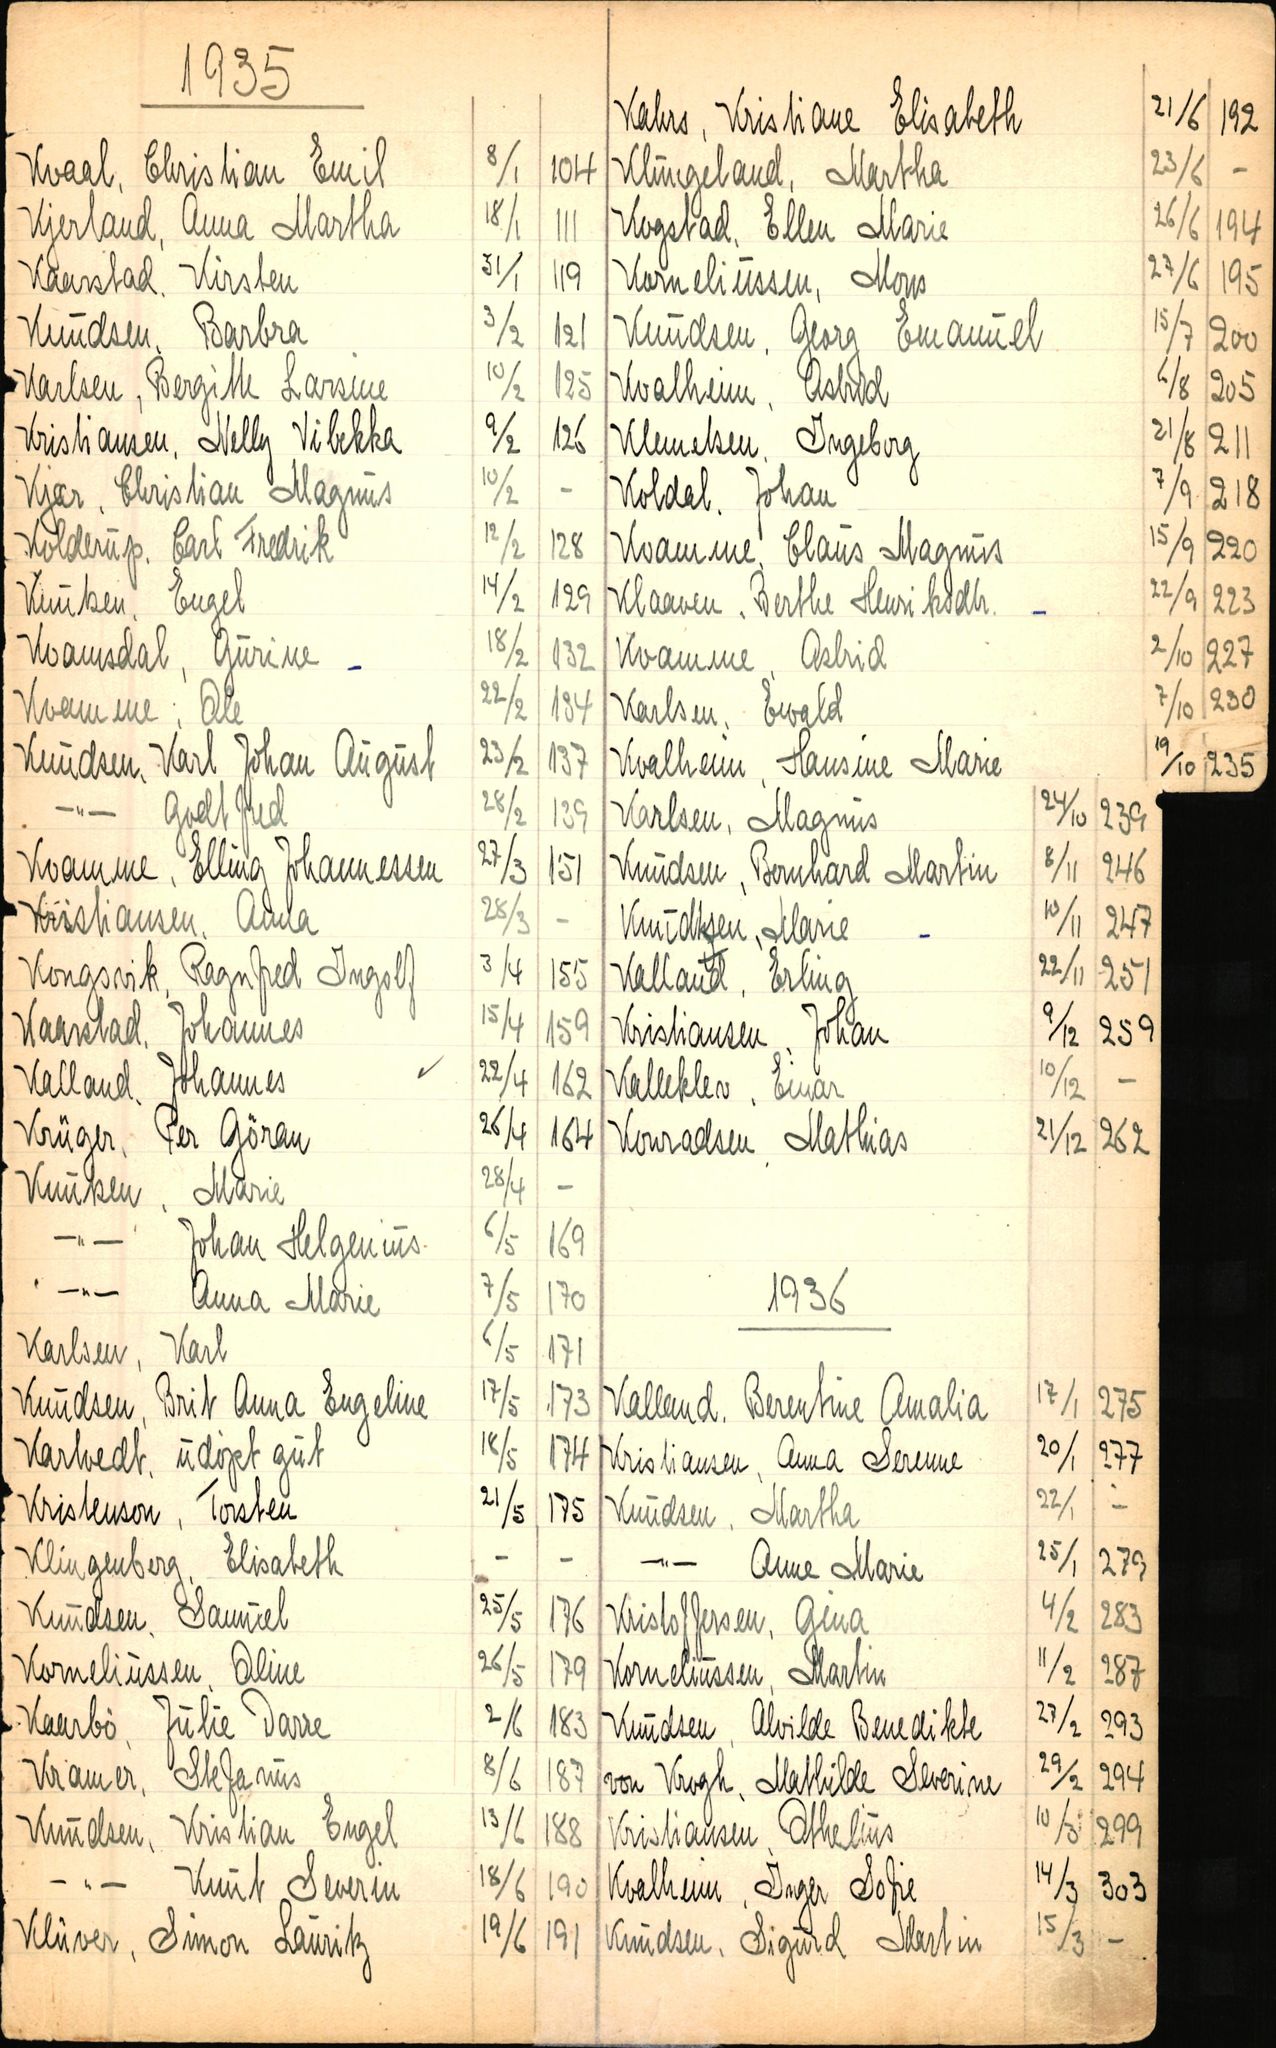 1935
Kvaal, Christian Emil 8/1 104
Kjerland, Anna Martha 18/1 111
Kaarstad, Kirsten 31/1 119
Knudsen, Barbra 3/2 121
Karlsen, Bergitte Larsine 10/2 125
Kristiansen, Nelly Vibekka 9/2 126
Kjær, Christian Magnus 10/2 -
Kolderup, Carl Fredrik 12/2 128
Knutsen, Engel 14/2 129
Kvamsdal, Gurine - 18/2 132
Kvamme, Ole 22/2 134
Knudsen, Karl Johan August 23/2 137
-"- Godtfred 28/2 139
Kvamme, Elling Johannessen 27/3 151
Kristiansen, Anna 28/3 -
Kongsvik, Ragnfred Ingolf 3/4 155
Kaarstad, Johannes 15/4 159
Kalland, Johannes ✓ 22/4 162
Krüger, Per Göran 26/4 164
Knutsen, Marie 28/4 -
-"- Johan Helgenius 6/5 169
-"- Anna Marie 7/5 170
Karlsen, Karl 6/5 171
Knudsen, Brit Anna Engeline 17/5 173
Kartvedt, udöpt gut 18/5 174
Kristenson, Torsten 21/5 175
Klingenberg, Elisabeth - -
Knudsen, Samuel 25/5 176
Korneliussen, Oline 26/5 179
Kaarbö, Julie Darre 2/6 183
Kramer, Stefanus 8/6 187
Knudsen, Kristian Engel 13/6 188
-"- Knut Severin 18/6 190
Klüver, Simon Lauritz 19/6 191
Kahrs, Kristiane Elisabeth 21/6 192
Klungeland, Martha 23/6 -
Kogstad, Ellen Marie 26/6 194
Korneliussen, Mons 27/6 195
Knudsen, Georg Emanuel 15/7 200
Kvalheim, Astrid 6/8 205
Klemetsen, Ingeborg 21/8 211
Koldal, Johan 7/9 218
Kvamme, Claus Magnus 15/9 220
Klaaven, Berthe Henriksdtr. - 22/9 223
Kvamme, Astrid 2/10 227
Karlsen, Ewald 7/10 230
Kvalheim, Hansine Marie 19/10 235
Karlsen, Magnus 24/10 239
Knudsen, Bernhard Martin 8/11 246
Knudsen, Marie - 10/11 247
Kalland, Erling 22/11 251
Kristiansen, Johan 9/12 259
Kalleklev, Einar 10/12 -
Konradsen, Mathias 21/12 262
1936
Kalland, Berentine Amalia 17/1 275
Kristiansen, Anna Serenne 20/1 277
Knudsen, Martha 22/1 -
-"- Anne Marie 25/1 279
Kristoffersen, Gina 4/2 283
Korneliussen, Martin 11/2 287
Knudsen, Alvilde Benedikte 27/2 293
von Krogh, Mathilde Severine 29/2 294
Kristiansen, Athelius 10/3 299
Kvalheim, Inger Sofie 14/3 303
Knudsen, Sigurd Martin 15/3 -